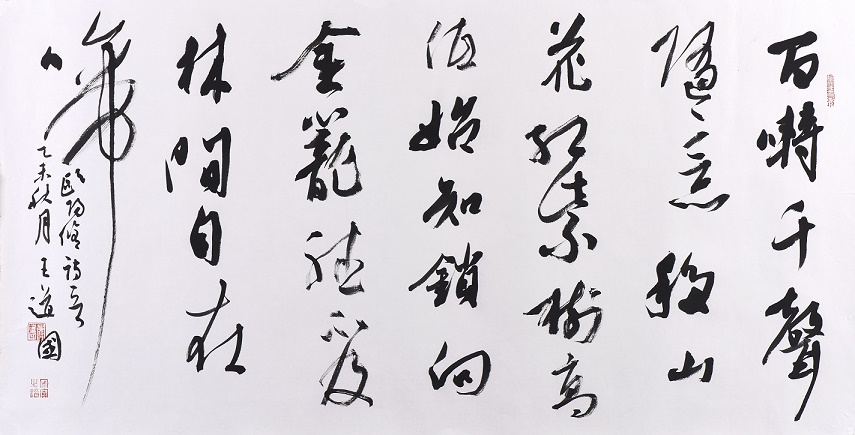 百囀千聲
隨意移山
花紅紫樹高
低始知鎖向
金籠聽不及
林間自在
啼
歐陽脩詩
乙未秋月王道國